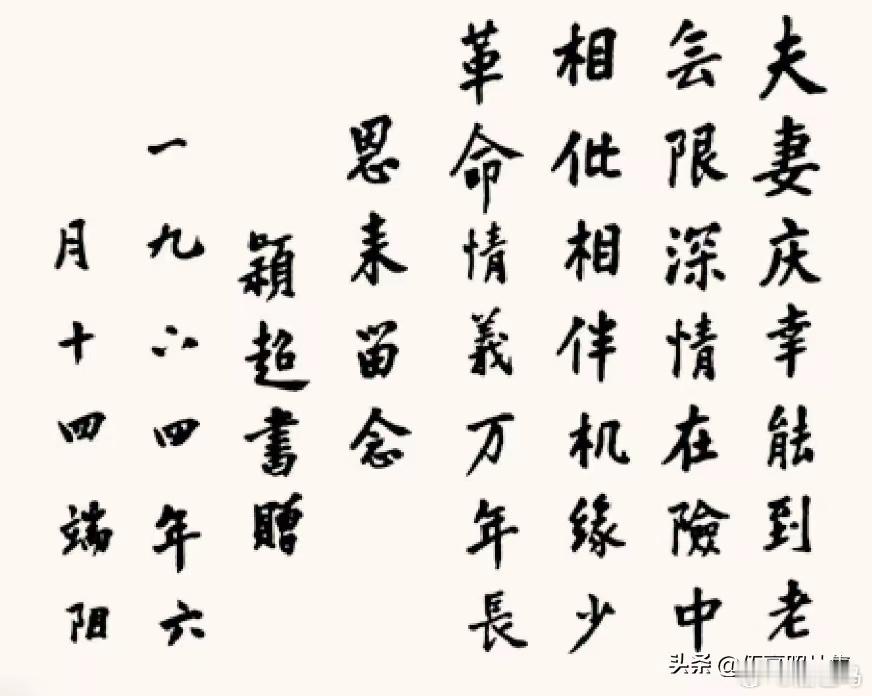 夫妻庆幸能到老
无限深情在險中
相依相伴机缘少
革命情義万年長
恩来留念
穎超書贈
一九六四年六
月十四端阳
头条 @